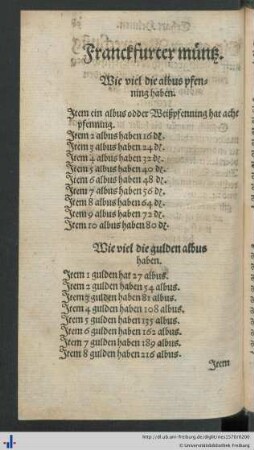 Franckfurter müntz.
Wie viel die albus pfen-
ning haben.
Item ein albus odder Weißpfenning hat acht
pfenning.
Item 2 albus haben 16 ₰.
Item 3 albus haben 24 ₰.
Item 4 albus haben 32 ₰.
Item 5 albus haben 40 ₰.
Item 6 albus haben 48 ₰.
Item 7 albus haben 56 ₰.
Item 8 albus haben 64 ₰.
Item 9 albus haben 72 ₰.
Item 10 albus haben 80 ₰.
Wie viel die gulden albus
haben.
Item 1 gulden hat 27 albus.
Item 2 gulden haben 54 albus.
Item 3 gulden haben 81 albus.
Item 4 gulden haben 108 albus.
Item 5 gulden haben 135 albus.
Item 6 gulden haben 162 albus.
Item 7 gulden haben 189 albus.
Item 8 gulden haben 216 albus.
Item
© Universitätsbibliothek Freiburg